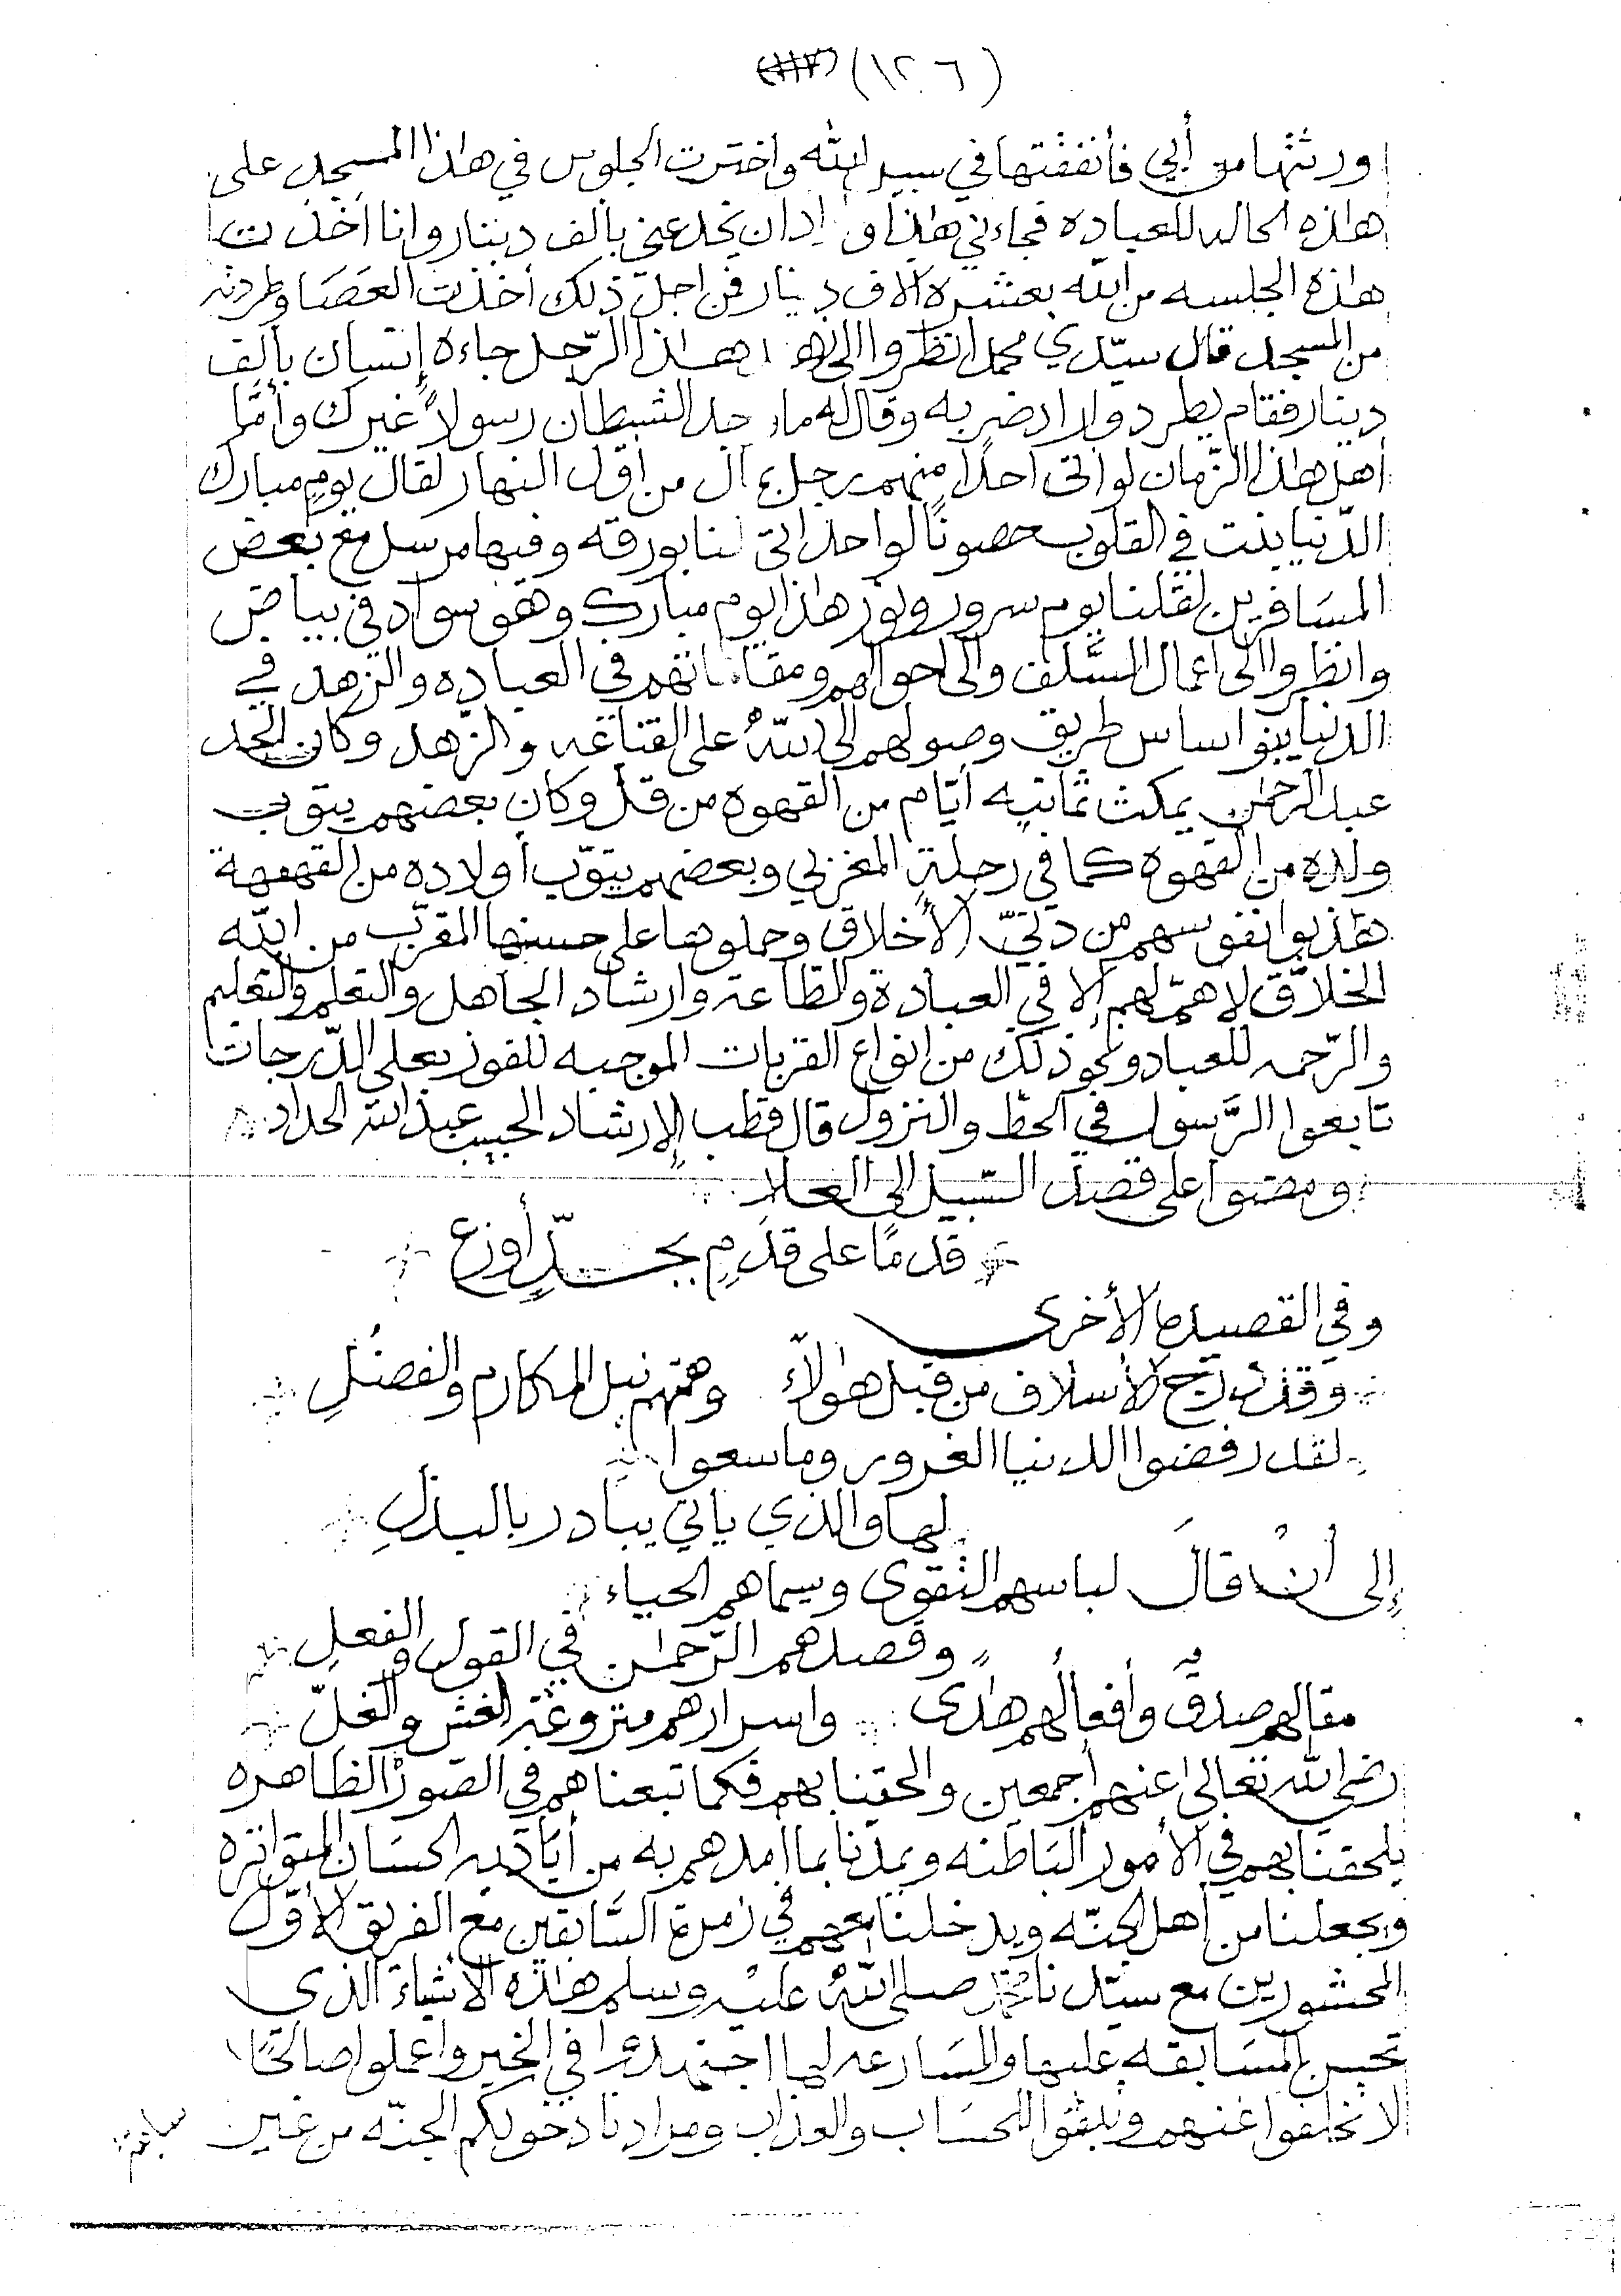 (١٢٠٦)
ورثتها من أبي فأنفقتها في سبيل الله واخترت الجلوس في هاذا المسجد على
هاذه الحاله للعباده فجاءني هاذا و اراد ان يخدعني بألف دينار وانا أخذت
هاذه الجلسه من الله بعشرة آلاف دينار فمن اجل ذلك أخذت العَصَا وطردته
من المسجد قال سيّدي محمد انظروا الى هاذا الرّجل جاءه إنسان بألف
دينار فقام يطرده واراد ضربه وقال له ما وجد الشيطان رسولاً غيرك وأمّا
أهل هاذا الزّمان لو اتى احدًا منهم رجل بمال من اوّل النهار لقال يوم مبارك
الدّنيا بنت في القلوب حصونًا لو احد اتى لنا بورقه وفيها مرسل مع بعض
المسَافرين لقلنا يوم سرور ونور هاذا يوم مبارك وهو سواد في بياض
وانظروا الى اعمال السَّلف والى احوالهم ومقاماتهم في العباده والزهد في
الدنيا بنوا اساس طريق وصولهم الى اللهُ على القناعه والزّهد وكان الجد
عبد الرحمٰن يمكث ثمانيه أيّام من القهوه من قلّ وكان بعضهم يتوب
ولده من القهوه كما في رحلة المغربي وبعضهم يتوّب أولاده من القهوة
هذبوا نفوسهم من دنيّ الأخلاق وحملوها على حسنها المقرّب من الله
الخلاّق لا همّ لهم إلا في العبادة والطاعة وارشاد الجاهل والتعلم والتعليم
والرّحمه للعباد ونحو ذلك من انواع القربات الموجبه للفوز بعلى الدّرجات
تابعوا الرَّسول في الحطّ والنزول قال قطب الإرشاد الحبيب عبد الله الحداد
ومضوا على قصد السّبيل الى العلا
قدمًا على قدَمٍ بجدٍّ أوزع
وفي القصيدة الأخرى
وقد درج الأسلاف من قبل هؤلاء وهمّتهم نيل المكارم والفضلِ
لقد رفضوا الدنيا الغرور وما سعوا
لها والذي يأتي يبادر بالبذلِ
إلى أنْ قالَ لباسهم التقوى وسيماهم الحياء
وقصدهم الرّحمٰن في القول والفعلِ
مقالهم صدقٌ وأفعالُهم هدًى واسرارهم منزوعة الغش والغلّ
رضي الله تعالى عنهم أجمعين والحقنا بهم فكما تبعناهم في الصّور الظاهره
يلحقنا بهم في الأمور البَاطنه ويمدّنا بما امدهم به من أيَاديه الحسَان المتواتره
ويجعلنا من اهل الجنّه ويدخلنا معهم في زمرة السَّابقين مع الفريق الأوّل
المحشورين مع سيّدنا محمّد صلى اللهُ عليه وسلم هاذه الأشياءَ الذي
تحسن المسَابقه عليها والمسَارعه لها اجتهدوا في الخير واعملوا صالحًا
لا تخلفوا عنهم وتبقوا للحسَاب والعذاب ومرادنا دخولكم الجنّه من غير
سابقة